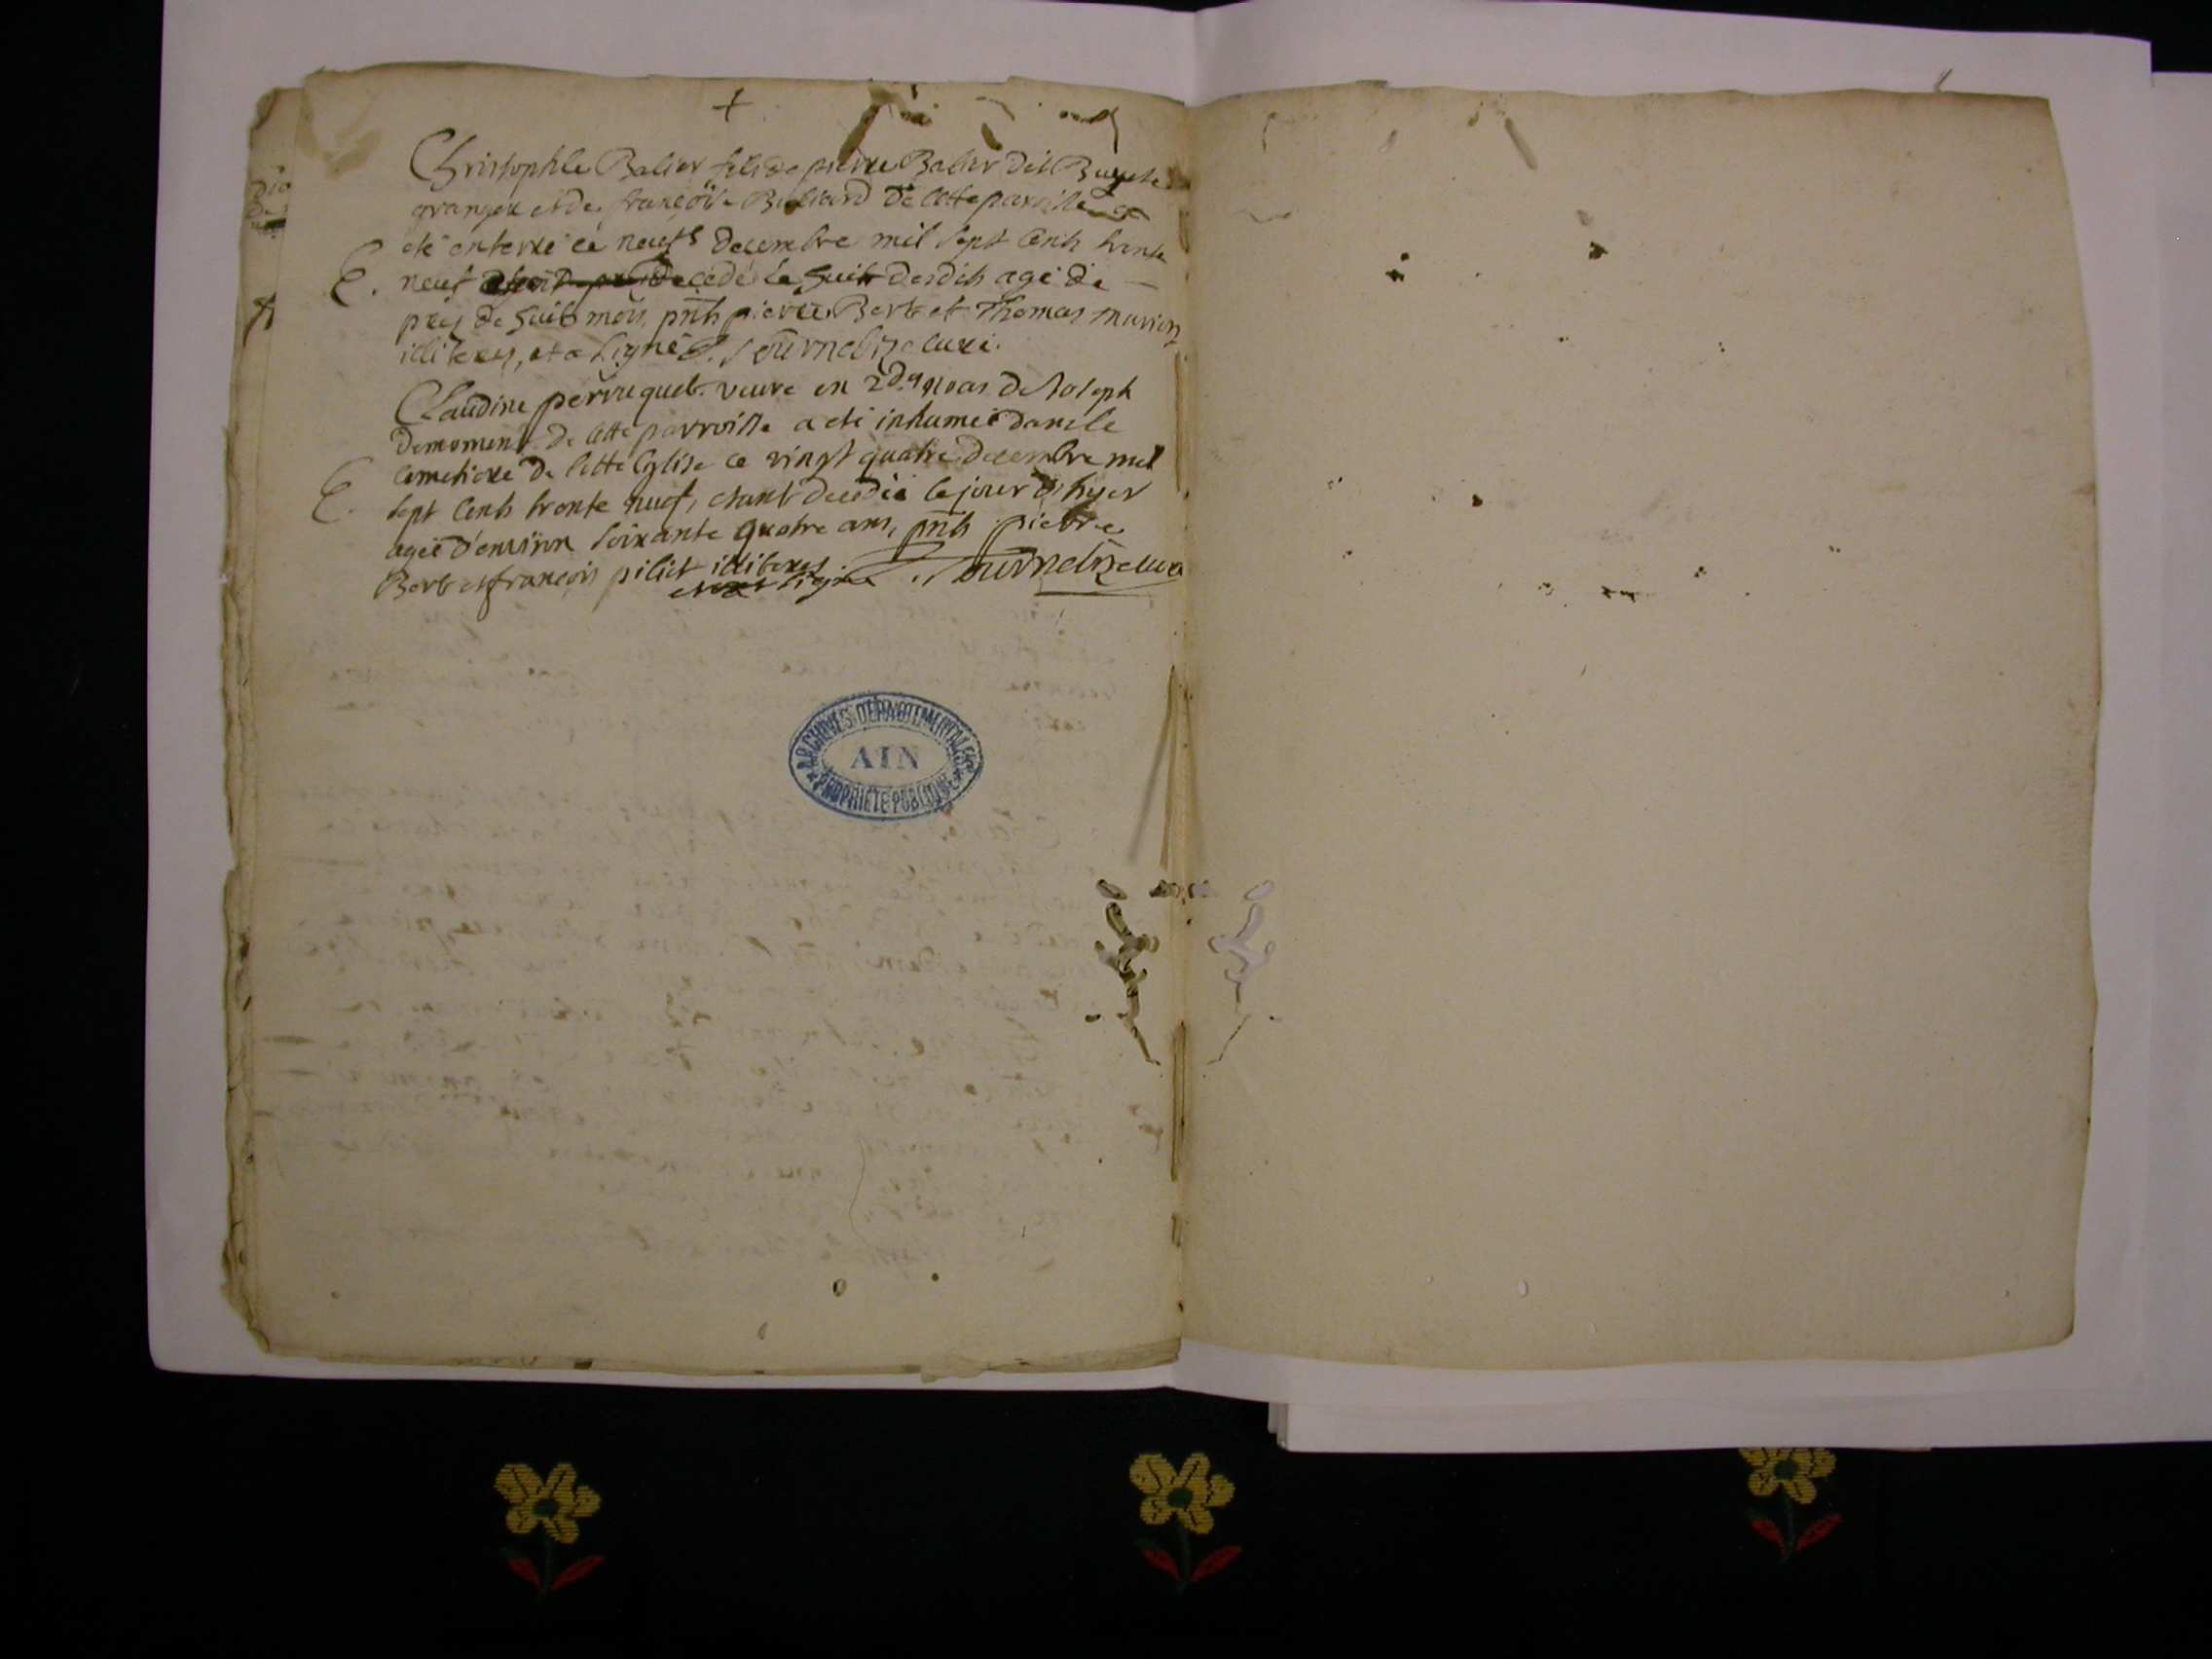 +
Christophle Balier fils de pierre Balier dit
granger et de françoise Billiard de cette paroisse a
eté enterré ce neufs decembre mil sept cents trente
E. neuf decedé le huit desdits agé de
pres de huit mois, pnts pierre Bert et Thomas marion
illiteres, et a signé J. Tournebize curé.
Claudine perruquet veuve en 2des nocces de Joseph
demoment de cette parroisse a eté inhumée dans le
cemetiere de cette Eglise ce vingt quatre decembre mil
E. sept cents trente neuf, etant decedée le jour d'hyer
agée d'environ soixante quatre ans, pnts pierre
Bert et françois pilict illiteres
et a signé J. Tournebize curé
ARCHIVES DEPARTEMENTALES
AIN
PROPRIETE PUBLIQUE